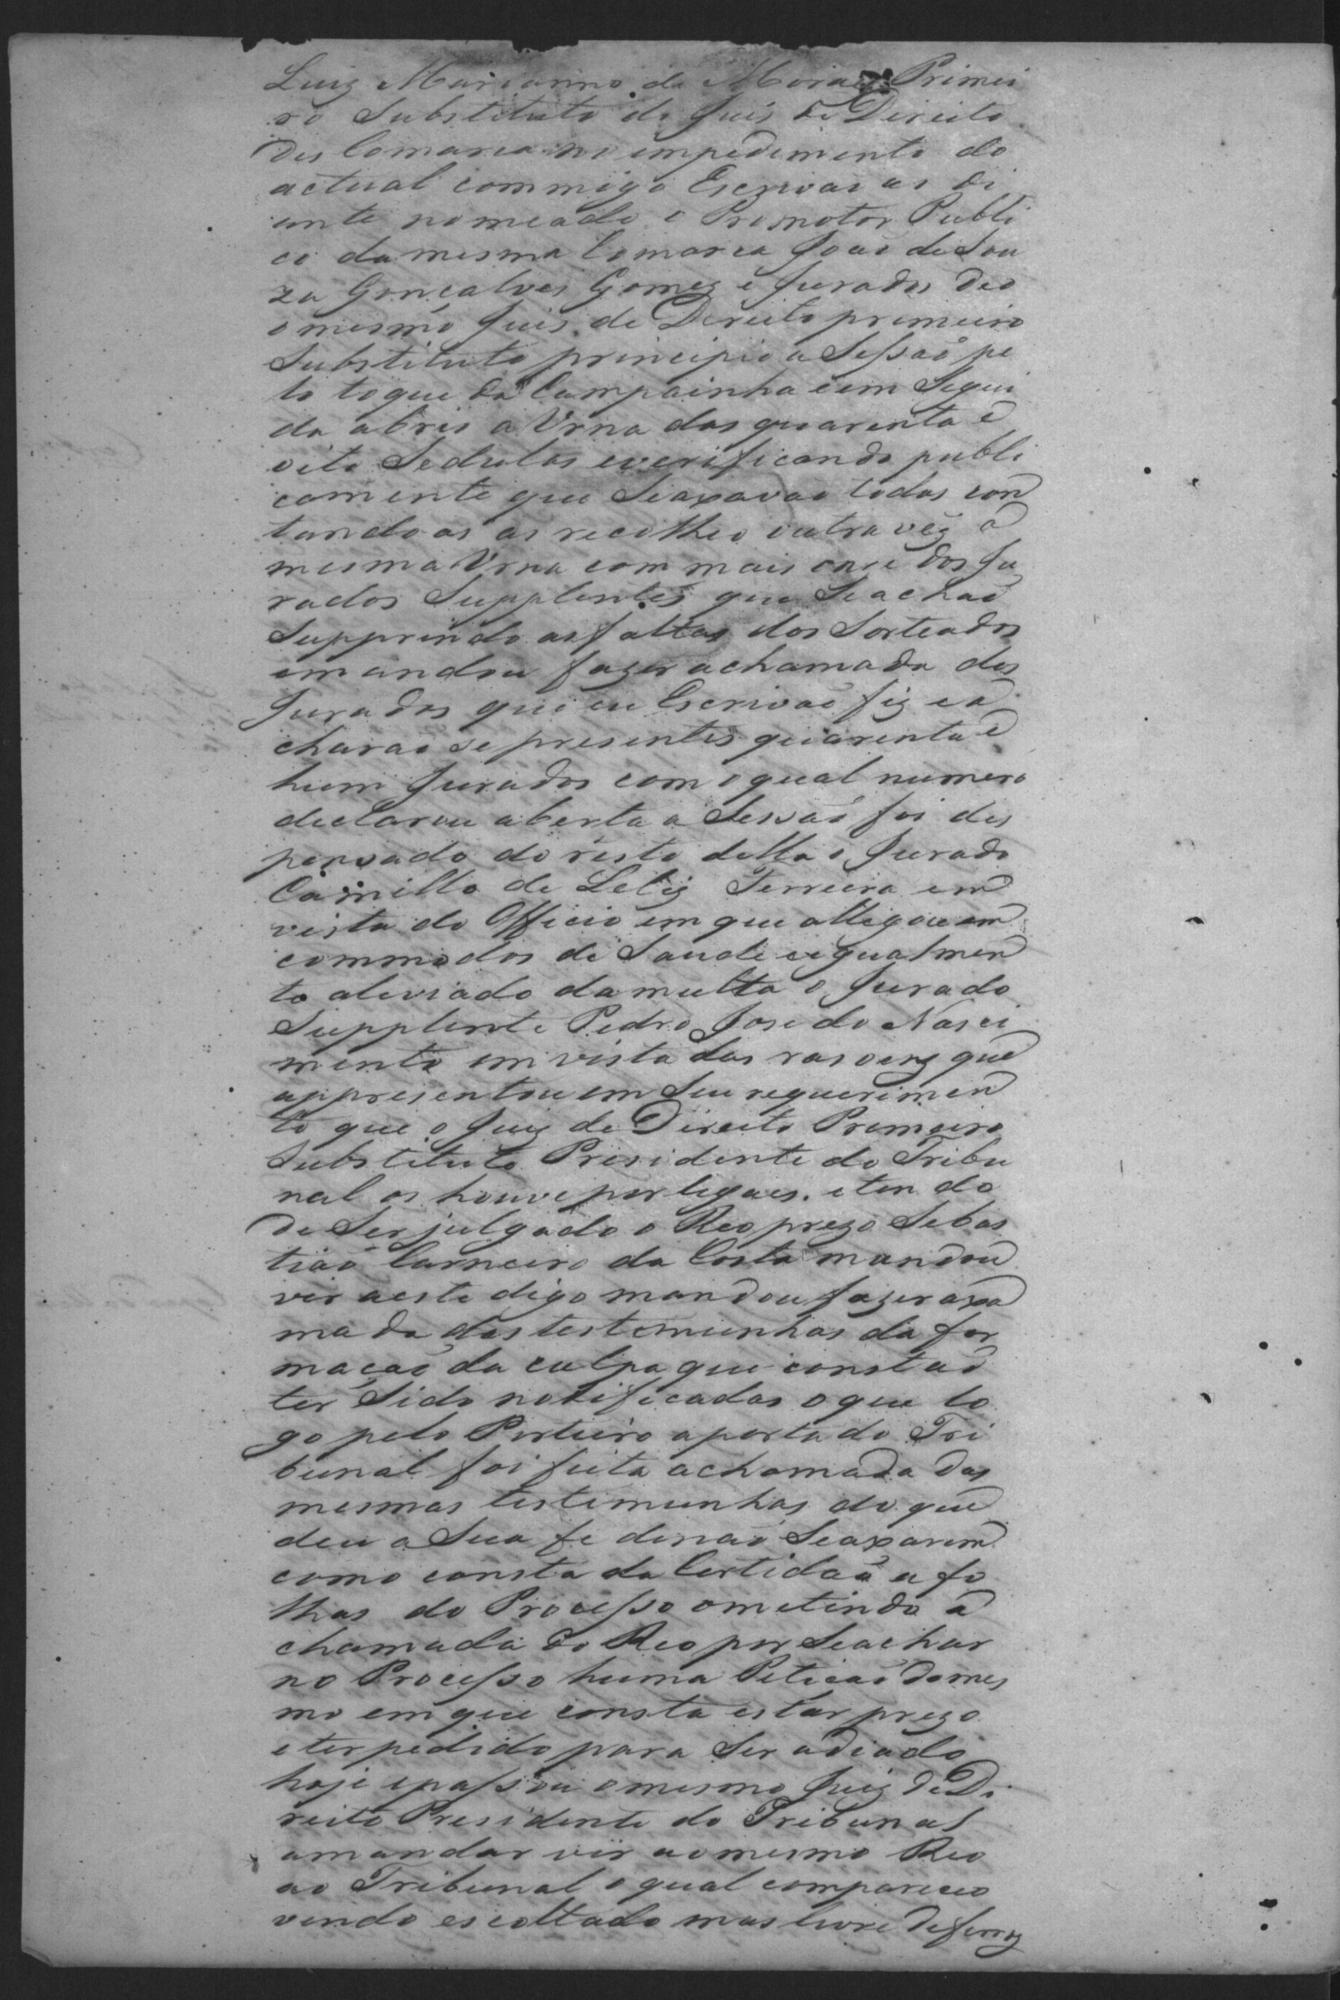 Luiz Marianno de Moraes Primei
ro Substituto do Juis de Direito
des Comarca no impedimento do
actual commigo Escrivaõ ao di
ante nomeado o Promotor Publi
co da mesma Comarca Joaõ de Sou
za Gonçalves Gomez e Jurados deo
o mesmo Juis de Direito primeiro
Substituto principio a Sessaõ pe
lo toque da Campainha e em Segui
da abrio a Urna das quarenta e
oito Sedulas e verificando publi
camente que Seaxavaõ todas con
tandoas as recolheo outra vêz a
mesma Urna com mais onse dos Ju
rados Supplentes que Seachaõ
Supprindo as faltas dos Sorteados
emandou fazer achamada dos
Jurados que eu Escrivaõ fiz e a
charaõ se presentes quarenta e
hum Jurados com o qual numero
declarou aberta a Sessaõ foi des
pensado do resto della o Jurado
Camillo de Leliz Ferreira em
vista do Officio em que allegou in
commodos de Saude e igualmen
te aliviado da multa o Jurado
Supplente Pedro Jose do Nasci
mento em vista das rasoens que
appresentou em Seu requerimen
to que o Juiz de Direito Primeiro
Substituto Presidente do Tribu
nal os houve por legaes. e ten do
de Ser julgado o Reo prezo Sebas
tiaõ Carneiro da Costa mandou
vir a este digo mandou fazer axa
mada das testemunhas da for
maçaõ da culpa que constaõ
ter Sido notificadas o que lo
go pelo Porteiro aporta do Tri
bunal foi feita achamada das
mesmas testimunhas do que
deu a Sua fe denaõ Seaxarem
como consta da Certidaõ a fo
lhas do Processo ometindo a
chamada do Reo por Seachar
no Processo huma Peticaõ do mes
mo em que consta estar prezo
e ter pedido para Ser adiado
hoje e passou o mesmo Juiz de Di
reito Presidente do Tribunal
amandar vir ao mesmo Reo
ao Tribunal o qual compareceo
vindo escoltado mas livre de ferros